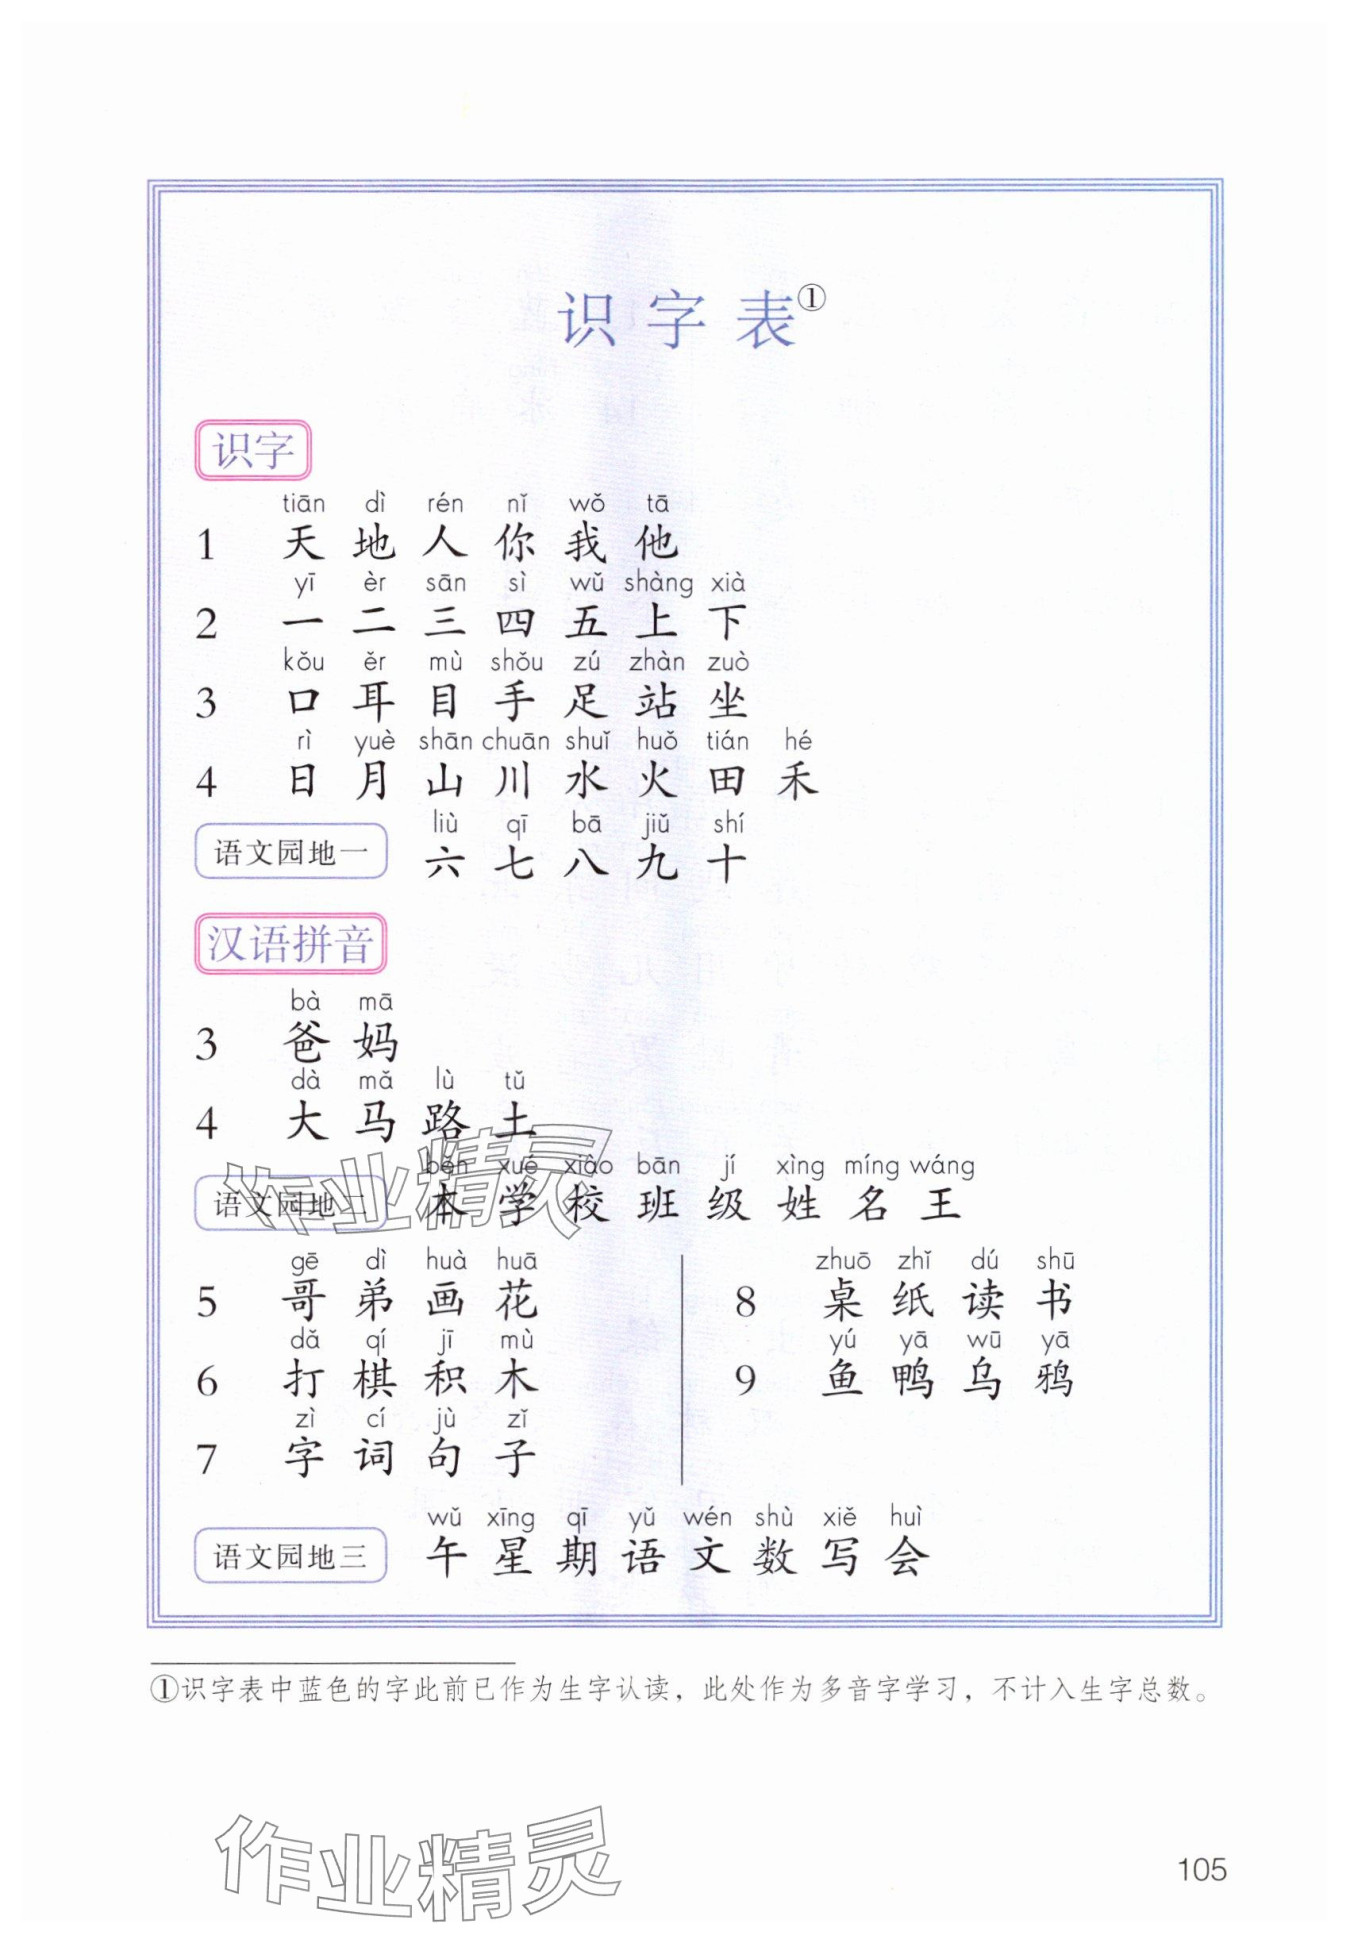 识字表①
识字
tiān dì rén nǐ wǒ tā
1 天 地 人 你 我 他
yī èr sān sì wǔ shàng xià
2 一 二 三 四 五 上 下
kǒu ěr mù shǒu zú zhàn zuò
3 口 耳 目 手 足 站 坐
rì yuè shān chuān shuǐ huǒ tián hé
4 日 月 山 川 水 火 田 禾
liù qī bā jiǔ shí
语文园地一 六 七 八 九 十
汉语拼音
bà mā
3 爸 妈
dà mǎ lù tǔ
4 大 马 路 土
běn xué xiào bān jí xìng míng wáng
语文园地二 本 学 校 班 级 姓 名 王
gē dì huà huā
5 哥 弟 画 花
dǎ qí jī mù
6 打 棋 积 木
zì cí jù zǐ
7 字 词 句 子
zhuō zhǐ dú shū
8 桌 纸 读 书
yú yā wū yā
9 鱼 鸭 乌 鸦
wǔ xīng qī yǔ wén shù xiě huì
语文园地三 午 星 期 语 文 数 写 会
①识字表中蓝色的字此前已作为生字认读，此处作为多音字学习，不计入生字总数。
作业精灵
作业精灵
105